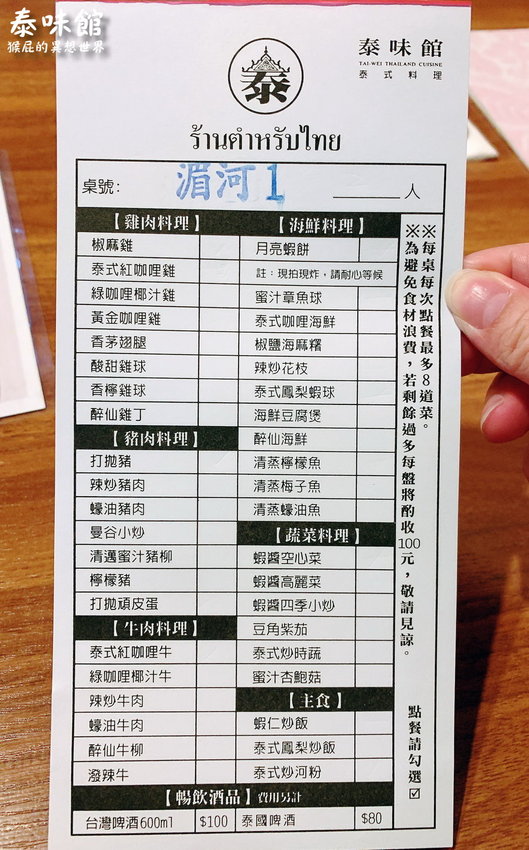 泰味館
猴屁的異想世界
泰
泰味館
TAI-WEI THAILAND CUISINE
泰式料理
ร้านตำหรับไทย
桌號: 湄河1 ______ 人
【雞肉料理】
椒麻雞
泰式紅咖哩雞
綠咖哩椰汁雞
黃金咖哩雞
香茅翅腿
酸甜雞球
香檸雞球
醉仙雞丁
【豬肉料理】
打拋豬
辣炒豬肉
蠔油豬肉
曼谷小炒
清邁蜜汁豬柳
檸檬豬
打拋頑皮蛋
【牛肉料理】
泰式紅咖哩牛
綠咖哩椰汁牛
辣炒牛肉
蠔油牛肉
醉仙牛柳
潑辣牛
【海鮮料理】
月亮蝦餅
註：現拍現炸，請耐心等候
蜜汁章魚球
泰式咖哩海鮮
椒鹽海麻糬
辣炒花枝
泰式鳳梨蝦球
海鮮豆腐煲
醉仙海鮮
清蒸檸檬魚
清蒸梅子魚
清蒸蠔油魚
【蔬菜料理】
蝦醬空心菜
蝦醬高麗菜
蝦醬四季小炒
豆角紫茄
泰式炒時蔬
蜜汁杏鮑菇
【主食】
蝦仁炒飯
泰式鳳梨炒飯
泰式炒河粉
【暢飲酒品】費用另計
台灣啤酒600ml $100 泰國啤酒 $80
※每桌每次點餐最多8道菜。
※為避免食材浪費，若剩餘過多每盤將酌收100元，敬請見諒。
點餐請勾選☑